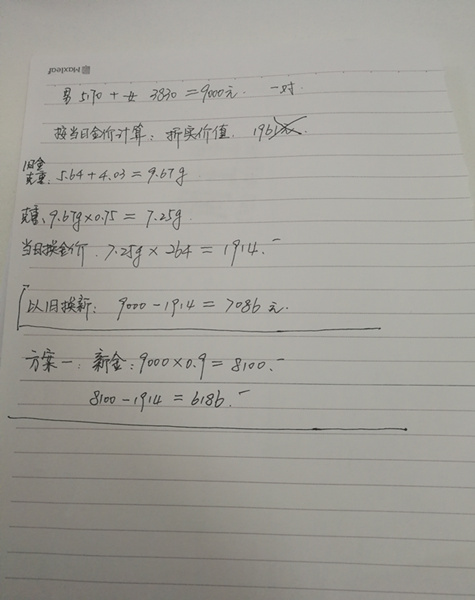 Maxleaf
男 5170 + 女 3830 = 9000元. 一对.
按当日金价计算: 折实价值. 1961元.
旧金
克重: 5.64 + 4.03 = 9.67g
克重: 9.67g×0.75 = 7.25g
当日换金价. 7.25g × 264 = 1914.-
以旧换新: 9000 - 1914 = 7086 元.
方案一: 新金: 9000×0.9 = 8100.-
8100 - 1914 = 6186.-